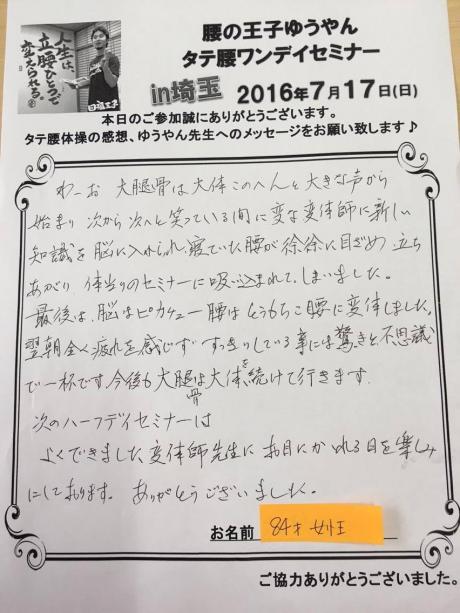 人生は、
立腰ひとつで
変えられる。
腰の王子ゆうやん
タテ腰ワンデイセミナー
in埼玉 2016年7月17日(日)
本日のご参加誠にありがとうございます。
タテ腰体操の感想、ゆうやん先生へのメッセージをお願い致します♪
わーお 大腿骨は大体このへんと大きな声から
始まり 次から次へと笑っている間に変な変体師に新しい
知識を脳に入れられ、寝ていた腰が徐徐に目ざめ 立ち
あがり 体当りのセミナーに吸い込まれて、しまいました。
最後は、脳はピカチュー 腰はとうもろこ腰に変体しました。
翌朝全く疲れを感じず すっきりしている事には驚きと不思議
で一杯です。今後も大腿骨は大体を続けて行きます。
次のハーフデイセミナーは
よくできました 変体師先生に お目にかゝれる日を楽しみ
にしております。 ありがとうございました。
お名前 84才 女性
ご協力ありがとうございました。